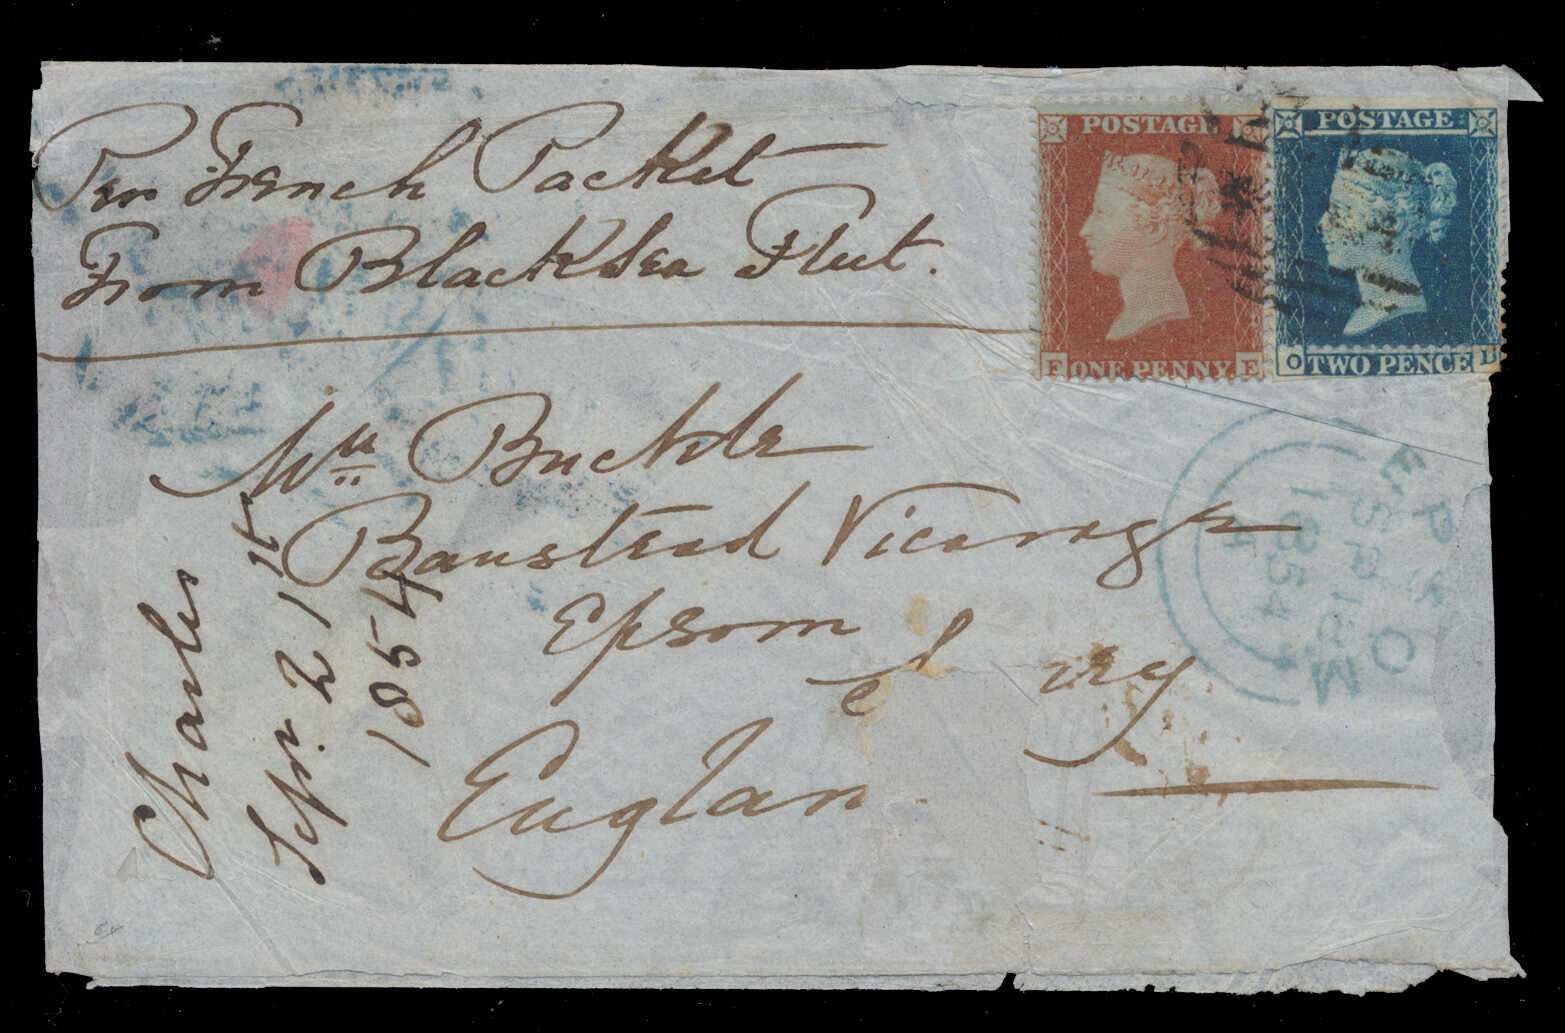 Per French Packet
From Black Sea Fleet.
POSTAGE
F ONE PENNY E
POSTAGE
O TWO PENCE L
Mrs Buckle
Banstead Vicarage
Epsom
England
Charles
Sepr. 21st
1854
EPSOM
1854